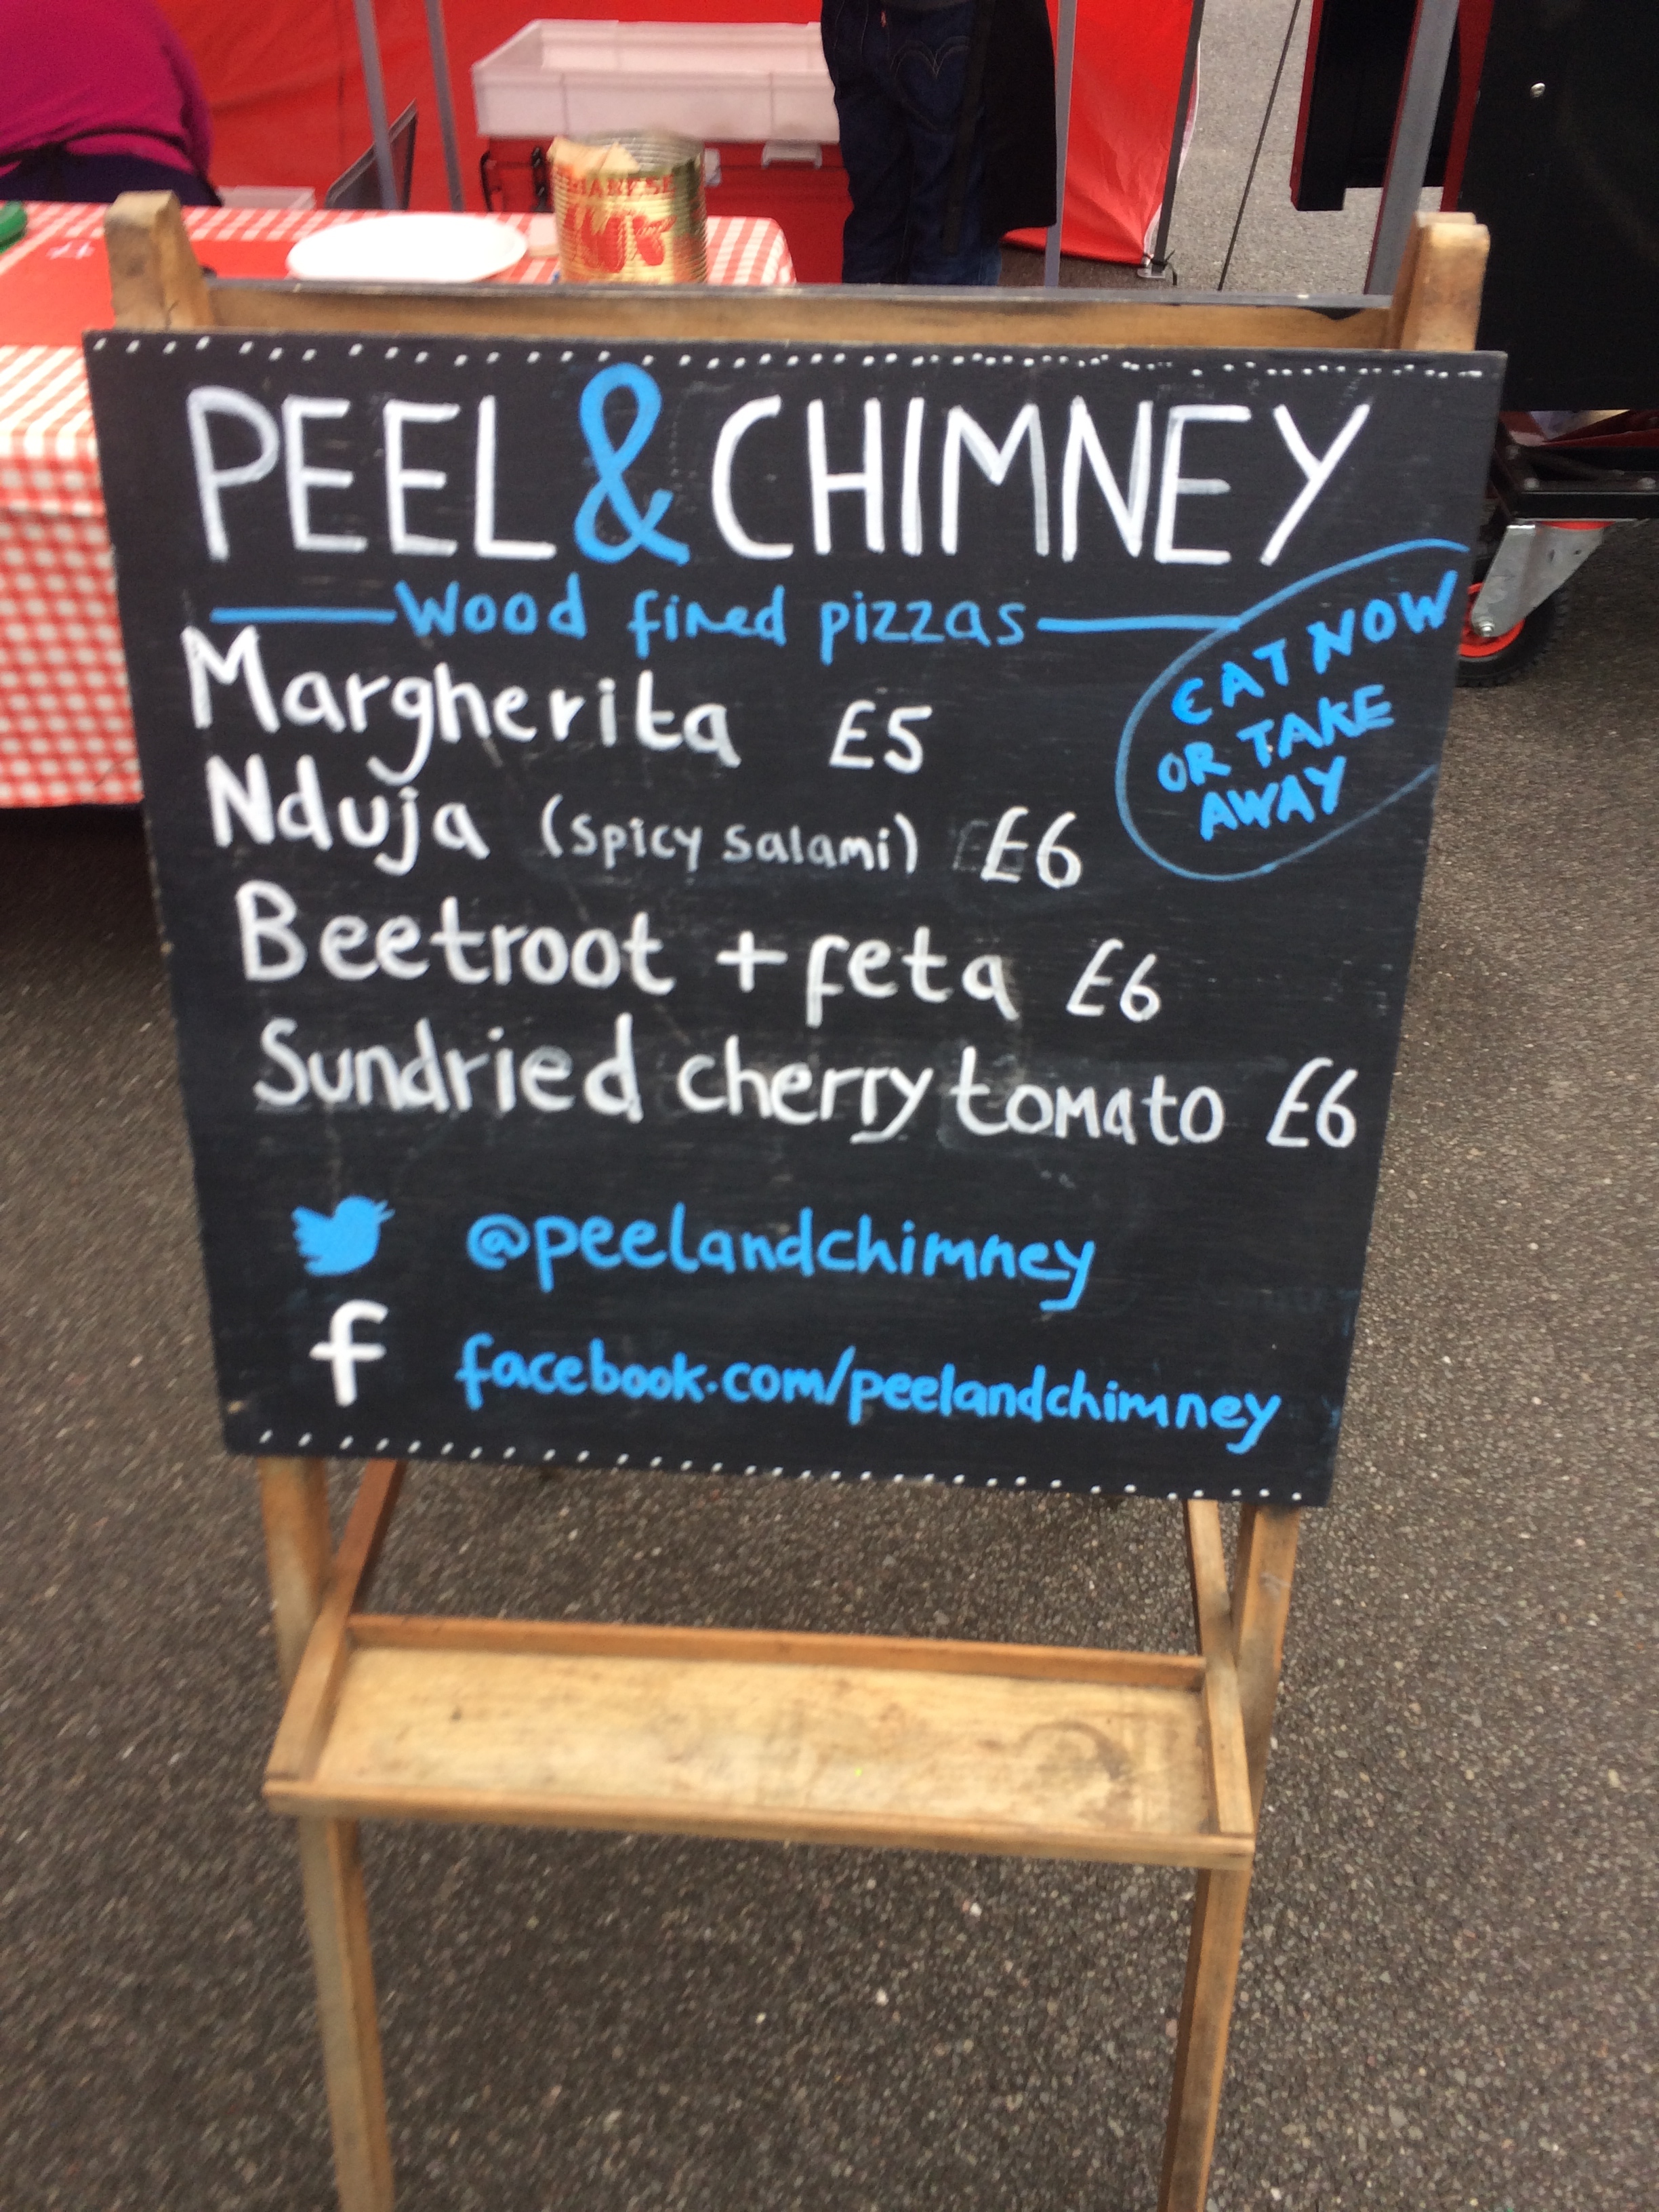 PEEL & CHIMNEY
Wood fired pizzas
EAT NOW
OR TAKE
AWAY
Margherita £5
Nduja (spicy salami) £6
Beetroot + feta £6
Sundried cherry tomato £6
@peelandchimney
f facebook.com/peelandchimney